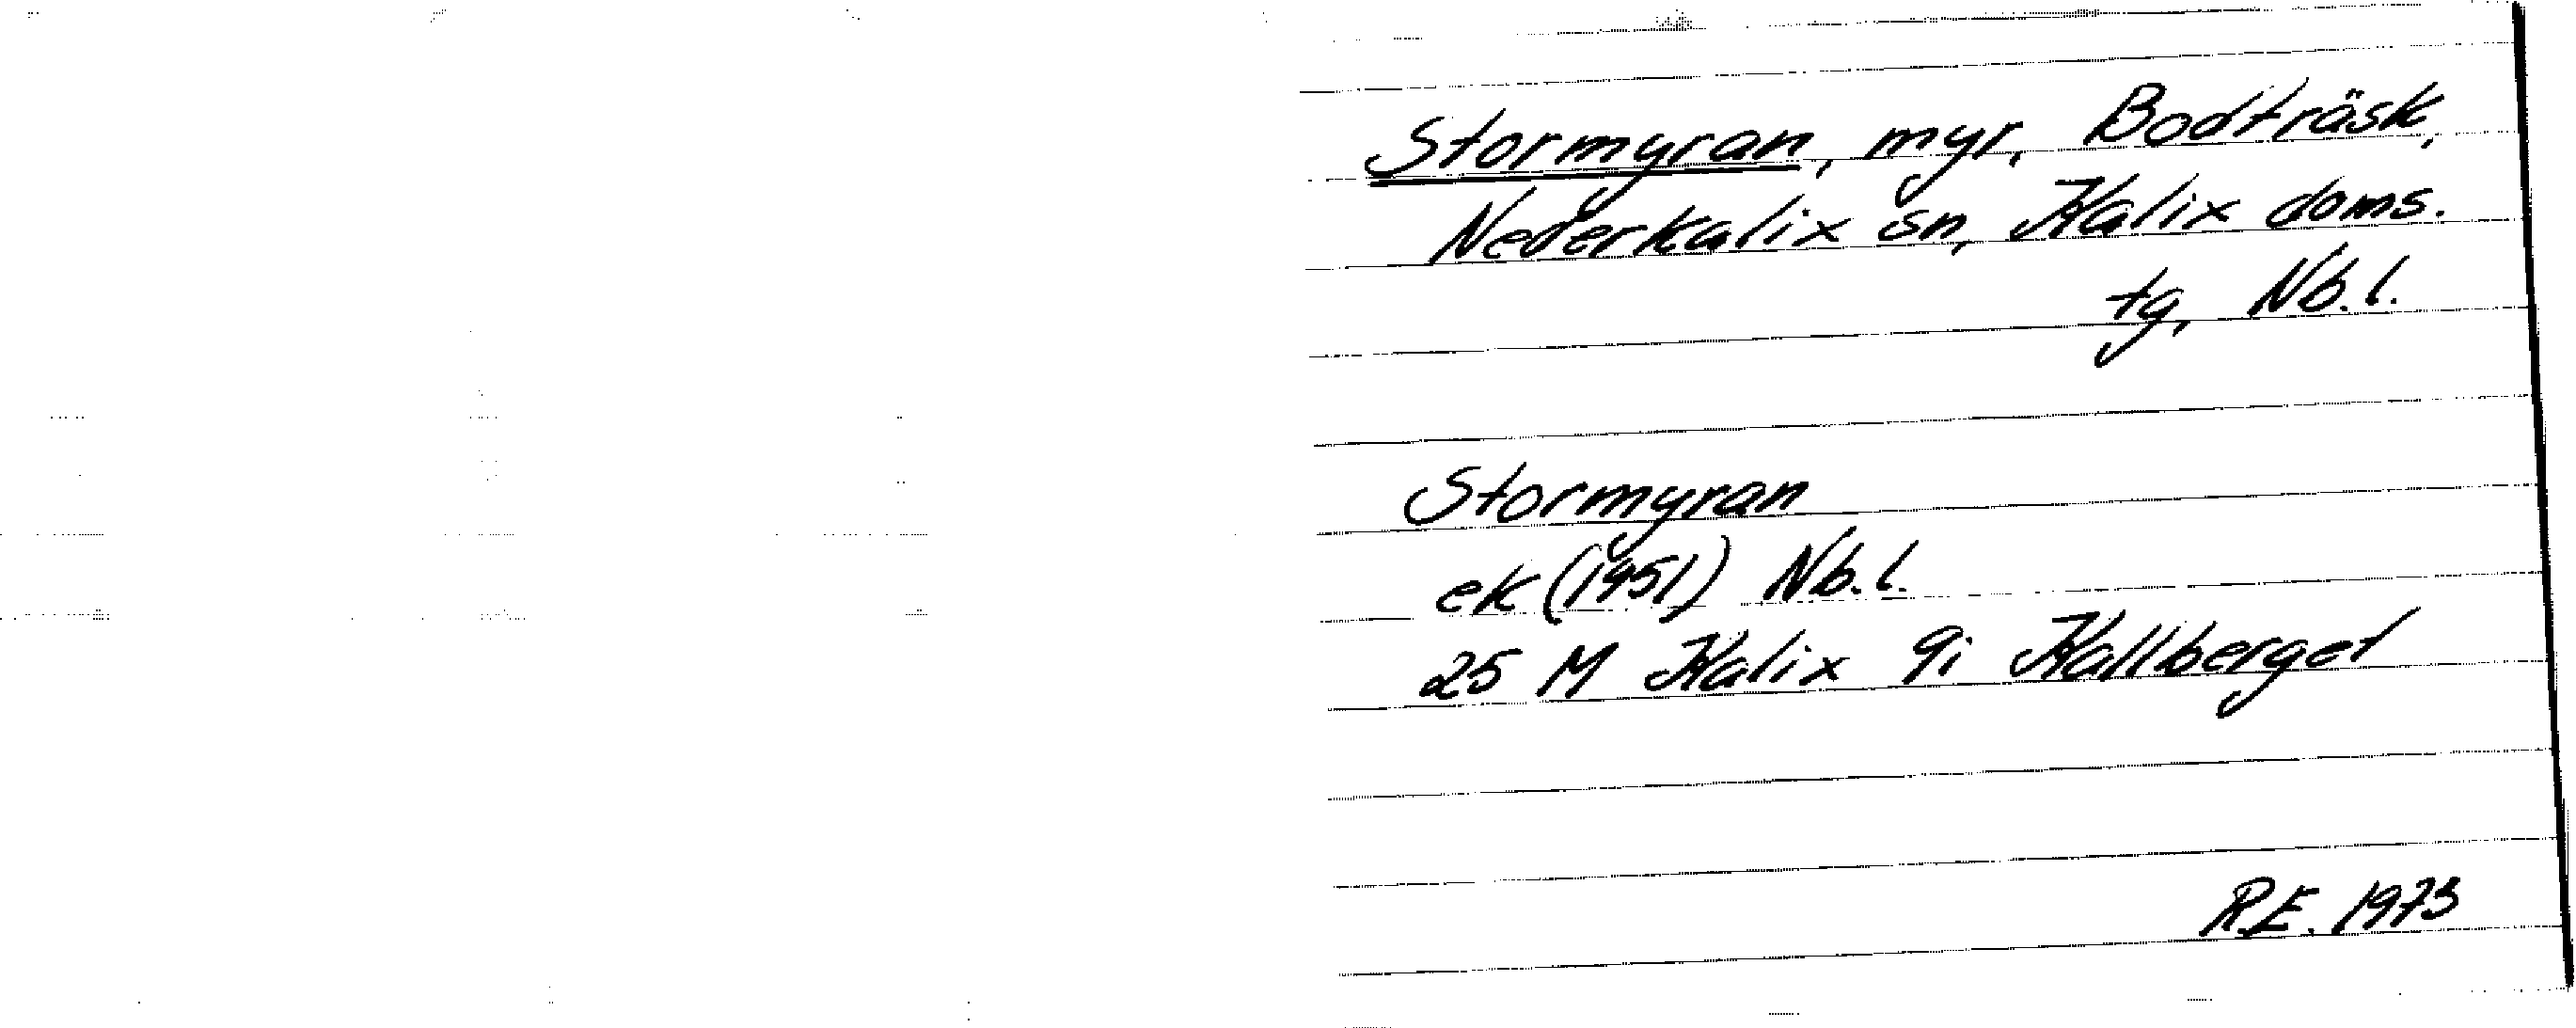 Stormyran, myr, Bodträsk,
Nederkalix sn, Kalix doms.
tg, Nb.l.
Stormyran
ek (1951) Nb.l.
25 M Kalix 9i Kallberget
R.E. 1973